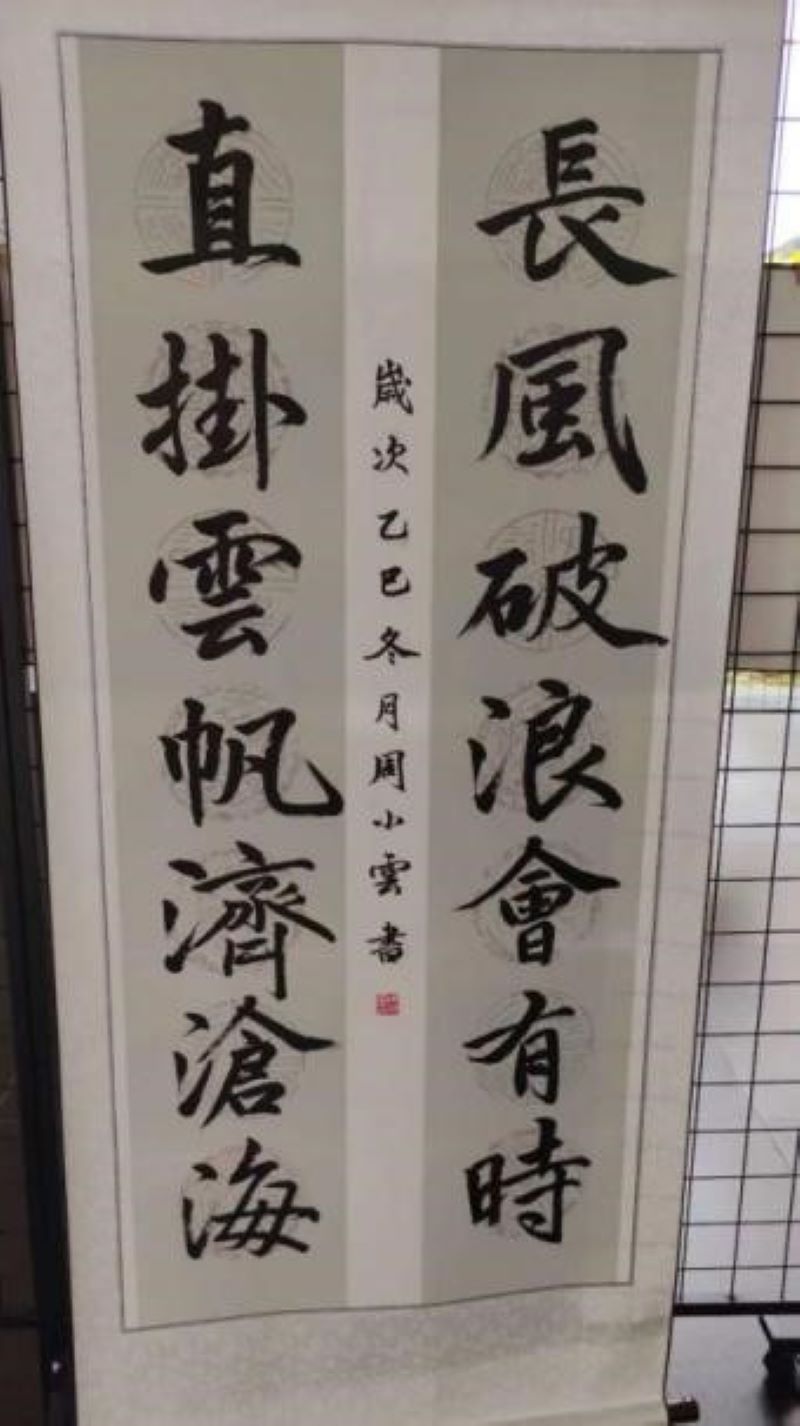 長風破浪會有時
直掛雲帆濟滄海
歲次乙巳冬月周小雲書